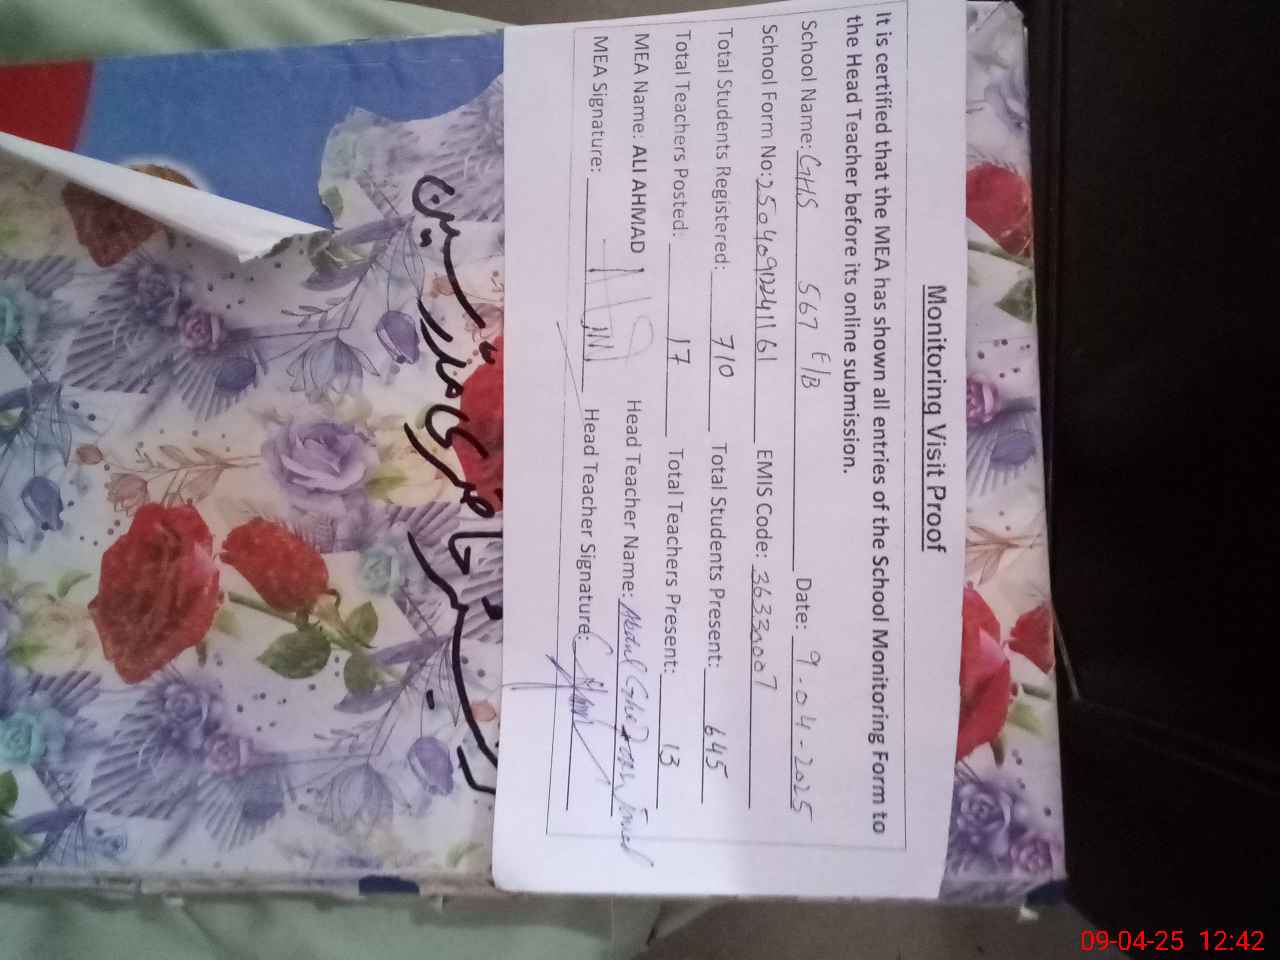 Monitoring Visit Proof
It is certified that the MEA has shown all entries of the School Monitoring Form to
the Head Teacher before its online submission.
School Name: GHS 567 E/B Date: 9-04-2025
School Form No: EMIS Code: 36330007
Total Students Registered: 710 Total Students Present: 645
Total Teachers Posted: 17 Total Teachers Present: 13
MEA Name: ALI AHMAD Head Teacher Name: Abdul
MEA Signature: Head Teacher Signature:
رجسٹر حاضری مدرسین
09-04-25 12:42